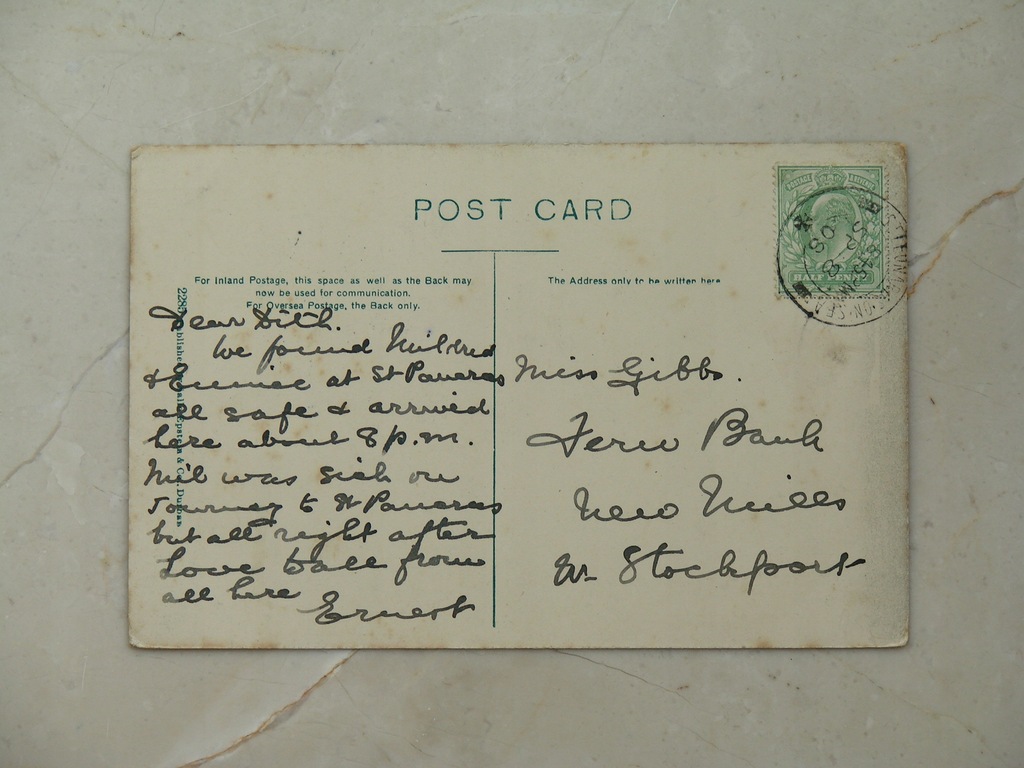 POST CARD
For Inland Postage, this space as well as the Back may
now be used for communication.
For Oversea Postage, the Back only.
The Address only to be written here
Dear Dith.
We found Mildred
& Eunice at St Pancras
all safe & arrived
here about 8 p.m.
Mil was sick on
Journey to St Pancras
but all right after
Love to all from
all here
Ernest
Miss Gibbs.
Fern Bank
New Mills
Nr Stockport
POSTAGE & REVENUE
HALF PENNY
ON-SEA
8.45 PM
SP 8
08